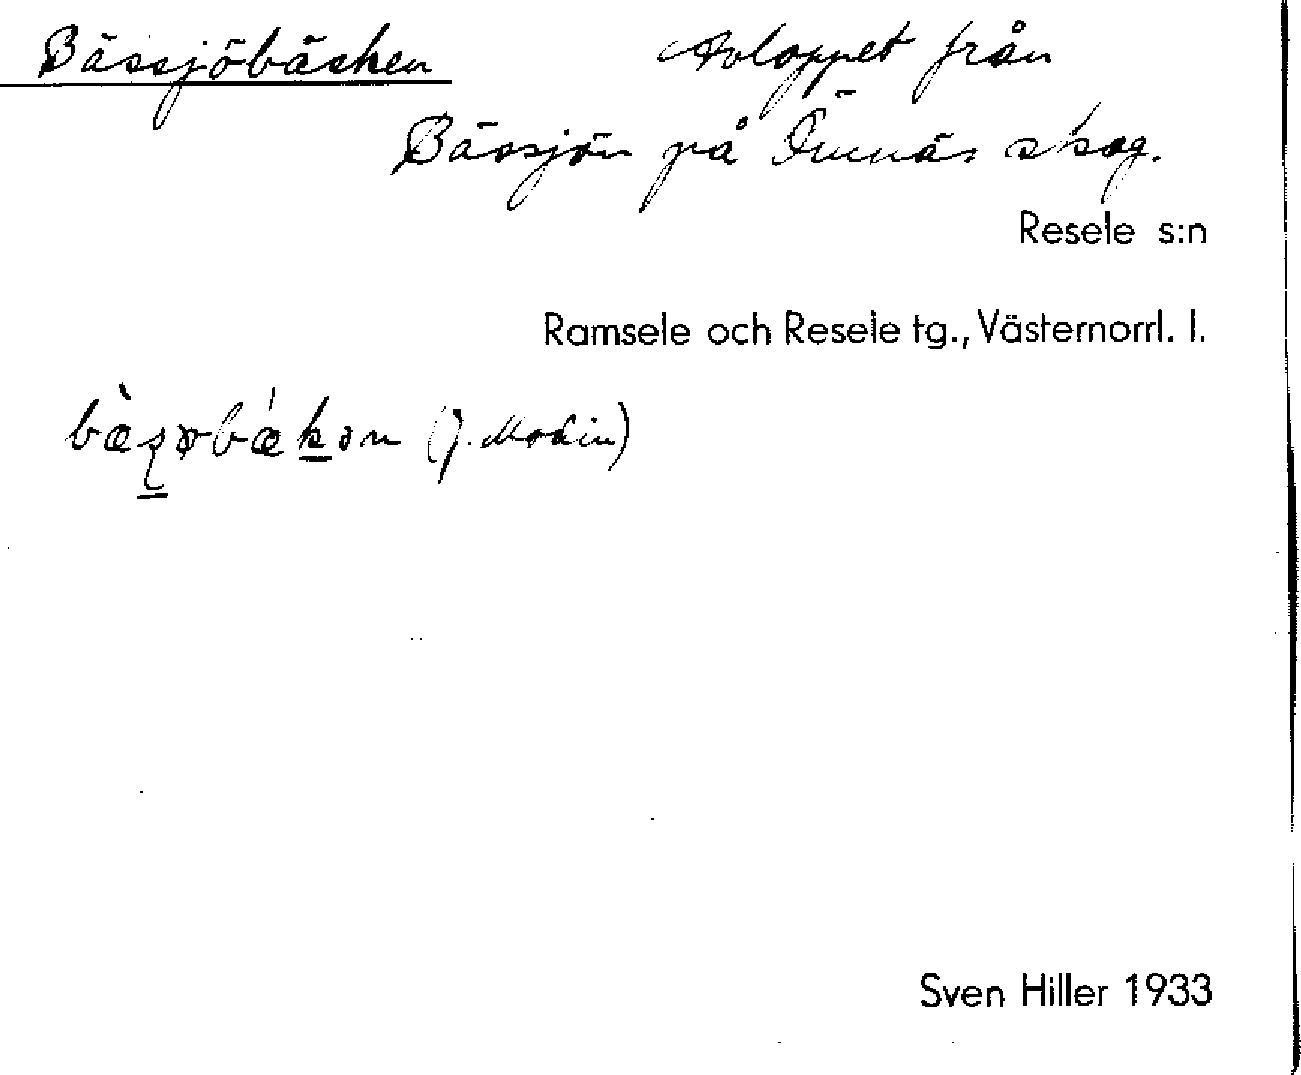 Bässjöbäcken Avloppet från
Bässjön på Ömnäs skog.
Resele s:n
Ramsele och Resele tg., Västernorrl. l.
(J. Modin)
Sven Hiller 1933